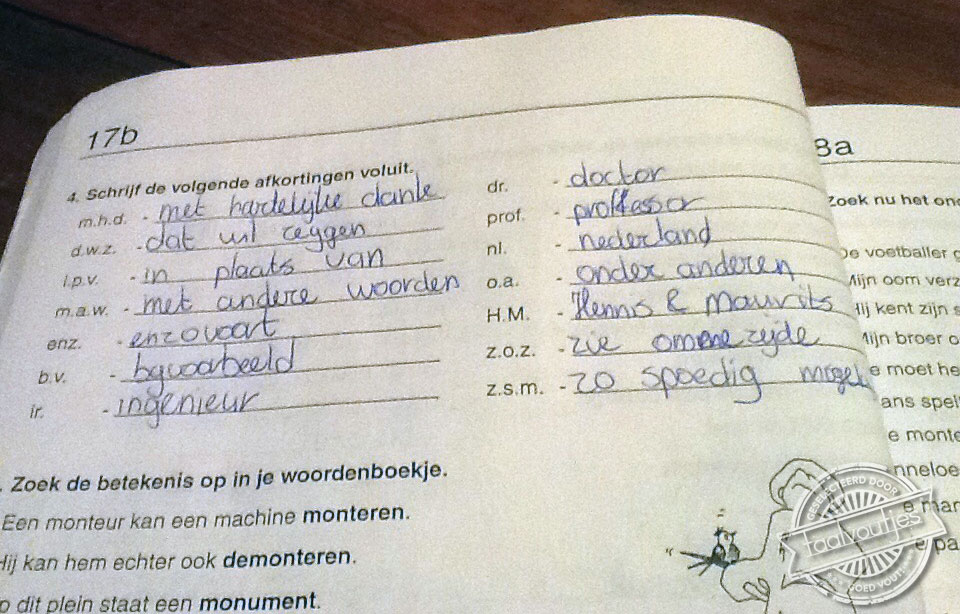 17b
4. Schrijf de volgende afkortingen voluit.
m.h.d. - met hardelijke dank
d.w.z. - dat wil ceggen
i.p.v. - in plaats van
m.a.w. - met andere woorden
enz. - enzovoort
b.v. - bijvoorbeeld
ir. - ingenieur
dr. - doctor
prof. - proffessor
nl. - nederland
o.a. - onder anderen
H.M. - Hennis & Maurits
z.o.z. - zie ommezijde
z.s.m. - zo spoedig mogel
. Zoek de betekenis op in je woordenboekje.
Een monteur kan een machine monteren.
Hij kan hem echter ook demonteren.
p dit plein staat een monument.
8a
Zoek nu het ond
De voetballer g
Mijn oom verz
Hij kent zijn s
Mijn broer o
e moet he
ans spel
e monte
nneloe
e mar
e pa
GESELECTEERD DOOR
taalvoutjes
GOED VOUT!